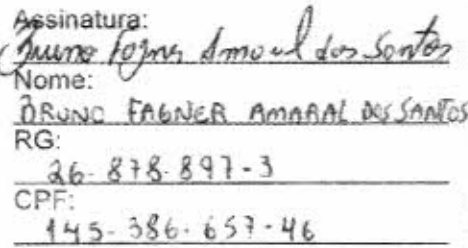 Assinatura:
Bruno Fagner Amaral dos Santos
Nome:
BRUNO FAGNER AMARAL DOS SANTOS
RG:
26-878-897-3
CPF:
145-386-657-46